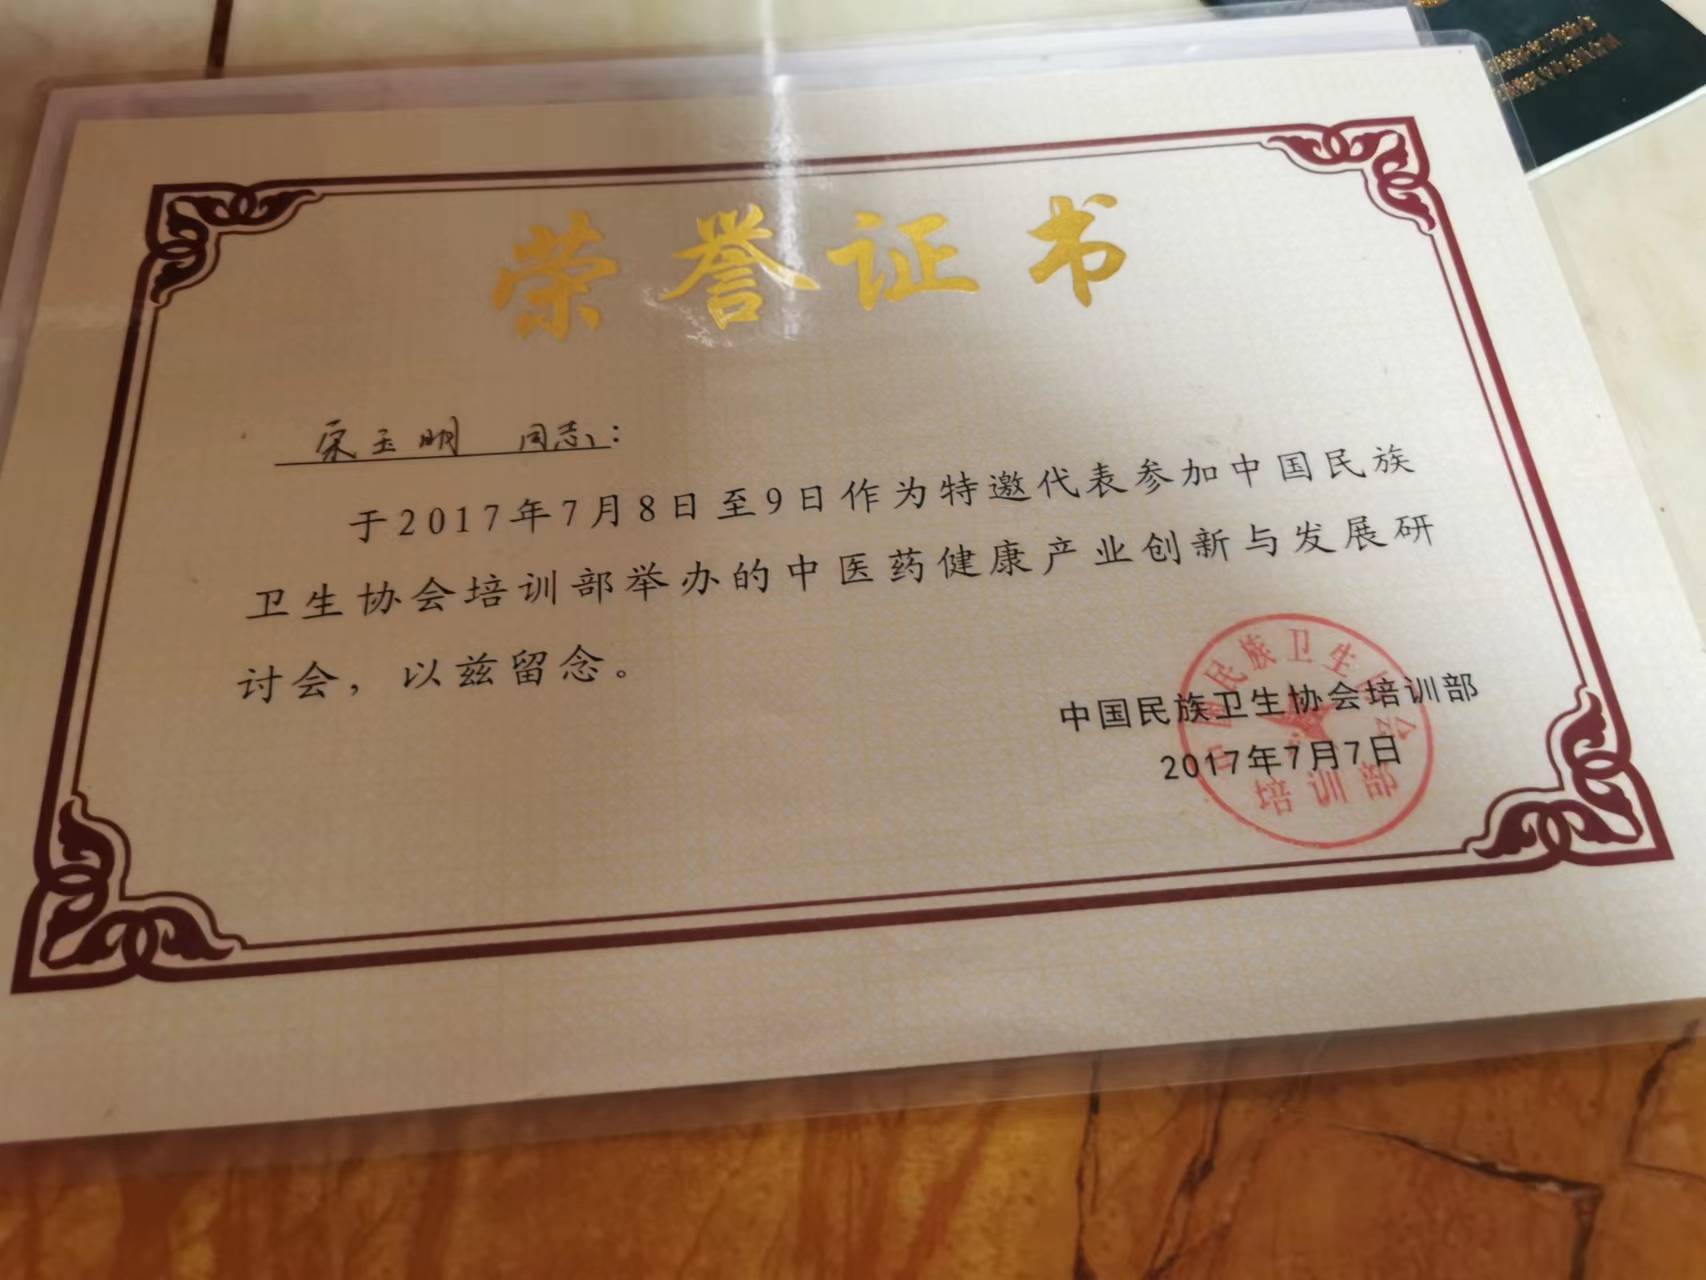 荣誉证书
宋玉明 同志：
于2017年7月8日至9日作为特邀代表参加中国民族
卫生协会培训部举办的中医药健康产业创新与发展研
讨会，以兹留念。
中国民族卫生协会培训部
2017年7月7日
中国民族卫生协会
培训部